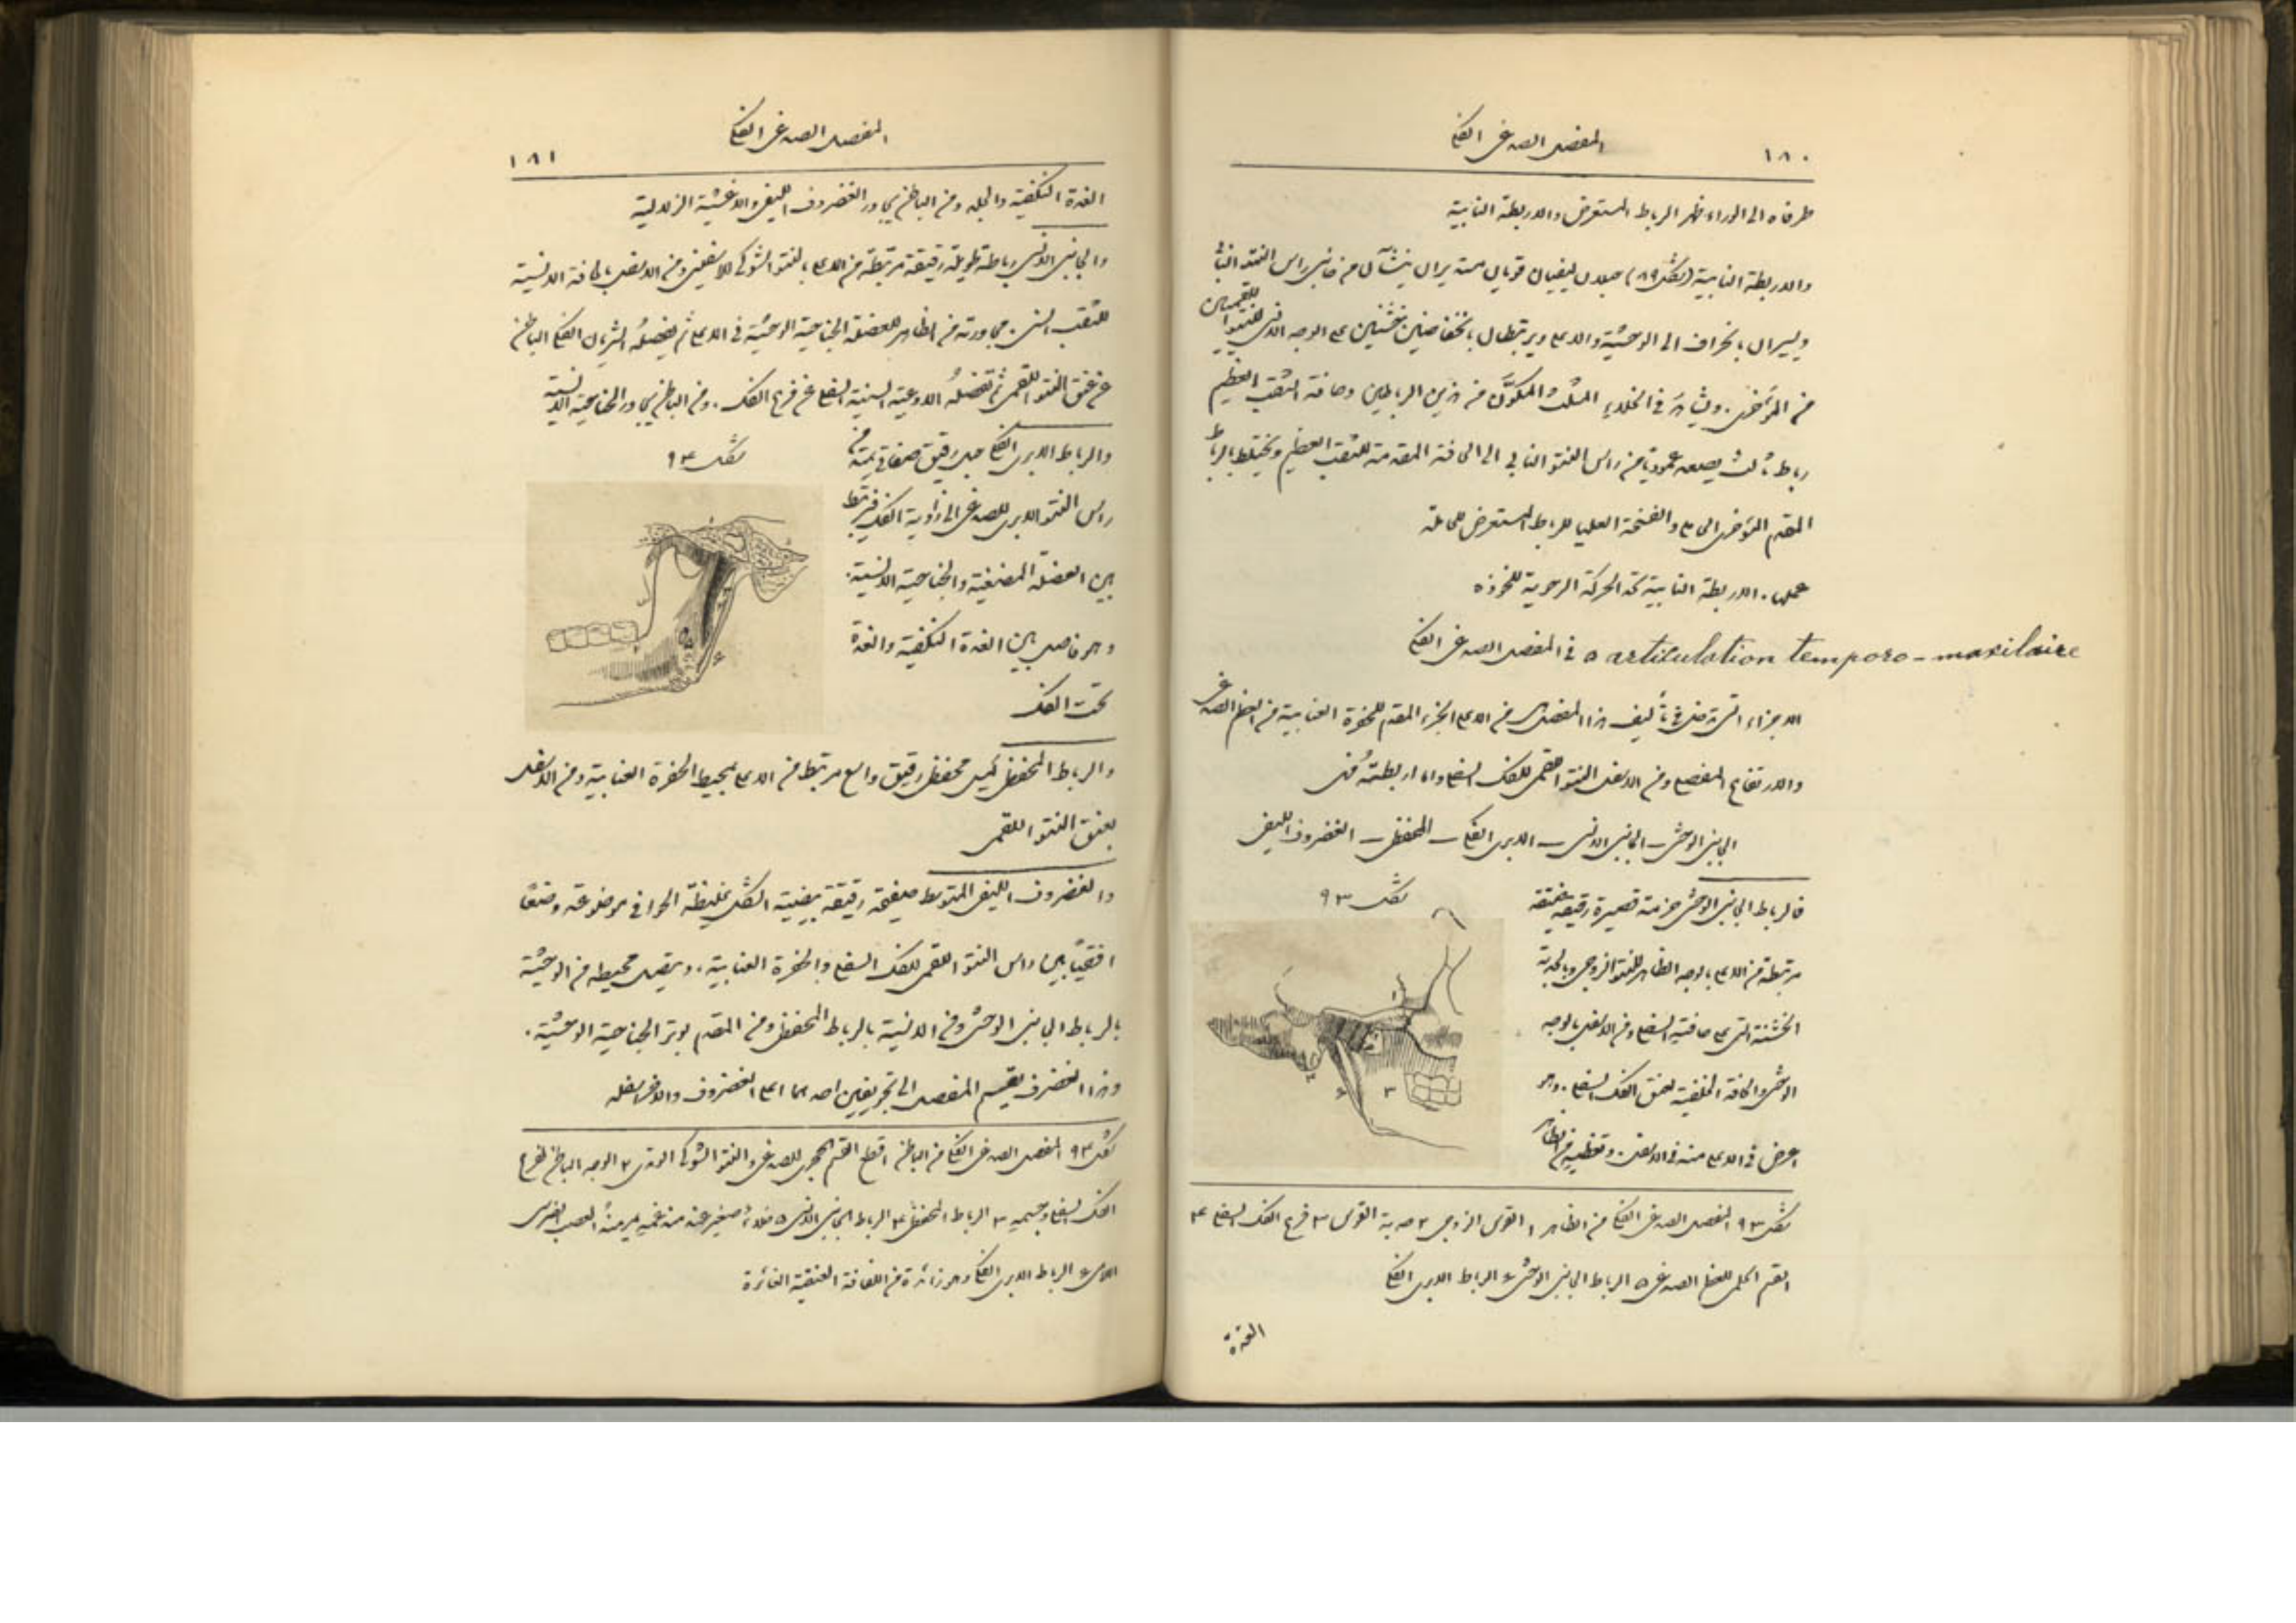 ١٨٠
المفصل الصدغي الفكي
طرفاه الى الوراء ظهر الرباط المستعرض والاربطة النابية
والاربطة النابية (شكل ٨٩) حبلان ليفيان قويان مستديران ينشآن من جانبي راس النتوء النابي
ويسيران بانحراف الى الوحشية والاعلى ويرتبطان بانخفاضين خشنين على الوجه الانسي للنتوأين اللقميين
من المؤخري. ويشاهد في الخلاء المثلث المكوَّن من هذين الرباطين وحافة الثقب العظيم
رباط ثالث يصعد عموديا من راس النتوء النابي الى الحافة المقدمة للثقب العظيم ويختلط بالرباط
المقدم المؤخري الحاملي والفتحة العليا للرباط المستعرض للحاملة
عمل. الاربطة النابية تحد الحركة الرحوية للخوذه
في المفصل الصدغي الفكي a articulation temporo-maxilaire
الاجزاء التي تدخل في تأليف هذا المفصل هي من الاعلى الجزء المقدم للحفرة العنابية من العظم الصدغي
والارتفاع المفصلي ومن الاسفل النتوء اللقمي للفك السفلي واما اربطته فهي
الجانبي الوحشي – الجانبي الانسي – الابري الفكي – المحفظي – الغضروف الليفي
فالرباط الجانبي الوحشي حزمة قصيرة رقيقة ضيقة
شكل ٩٣
مرتبطة من الاعلى بالوجه الظاهر للنتوء الزوجي وبالحدبة
الخشنة التي على حافته السفلى ومن الاسفل بالوجه
الوحشي والحافة الخلفية لعنق الفك السفلي. وهو
اعرض في الاعلى منه في الاسفل. وتغطيه من الظاهر
شكل ٩٣ المفصل الصدغي الفكي من الظاهر ١ القوس الزوجي ٢ حدبة القوس ٣ فرع الفك السفلي ٤
القسم الحلمي للعظم الصدغي ٥ الرباط الجانبي الوحشي ٦ الرباط الابري الفكي
الغدة
المفصل الصدغي الفكي
١٨١
الغدة النكفية والجلد ومن الباطن يجاور الغضروف الليفي والاغشية الزلالية
والجانبي الانسي رباطة طويلة رقيقة مرتبطة من الاعلى بالنتوء الشوكي للاسفيني ومن الاسفل بالحافة الانسية
للثقب السني. مجاورته من الظاهر للعضلة الجناحية الوحشية في الاعلى ثم يفصله الشريان الفكي الباطن
عن عنق النتوء اللقمي ثم تفصله الاوعية السنية السفلى عن فرع الفك. ومن الباطن يجاور الجناحية الانسية
والرباط الابري الفكي حبل رقيق صفاقي يمتد من
شكل ٩٤
راس النتوء الابري للصدغي الى زاوية الفك فيرتبط
بين العضلة المضغية والجناحية الانسية.
وهو فاصل بين الغدة النكفية والغدة
تحت الفك
والرباط المحفظي كيس محفظي رقيق واسع مرتبط من الاعلى بمحيط الحفرة العنابية ومن الاسفل
بعنق النتوء اللقمي
والغضروف الليفي المتوسط صفيحة رقيقة بيضية الشكل غليظة الحوافي موضوعة وضعًا
افقيًا بين راس النتوء اللقمي للفك السفلي والحفرة العنابية. ويتصل محيطه من الوحشية
بالرباط الجانبي الوحشي ومن الانسية بالرباط المحفظي ومن المقدم بوتر الجناحية الوحشية.
وهذا الغضروف يقسم المفصل الى تجويفين احدهما اعلى الغضروف والاخر اسفله
شكل ٩٤ المفصل الصدغي الفكي من الباطن ١ قطع القسم الحجري للصدغي والنتوء الشوكي الوتدي ٢ الوجه الباطن لفرع
الفك السفلي وجسمه ٣ الرباط المحفظي ٤ الرباط الجانبي الانسي ٥ خلاء صغير عند منغمه يمر منه العصب الضرسي
اللامي ٦ الرباط الابري الفكي وهو زائدة من اللفافة العنقية الغائرة